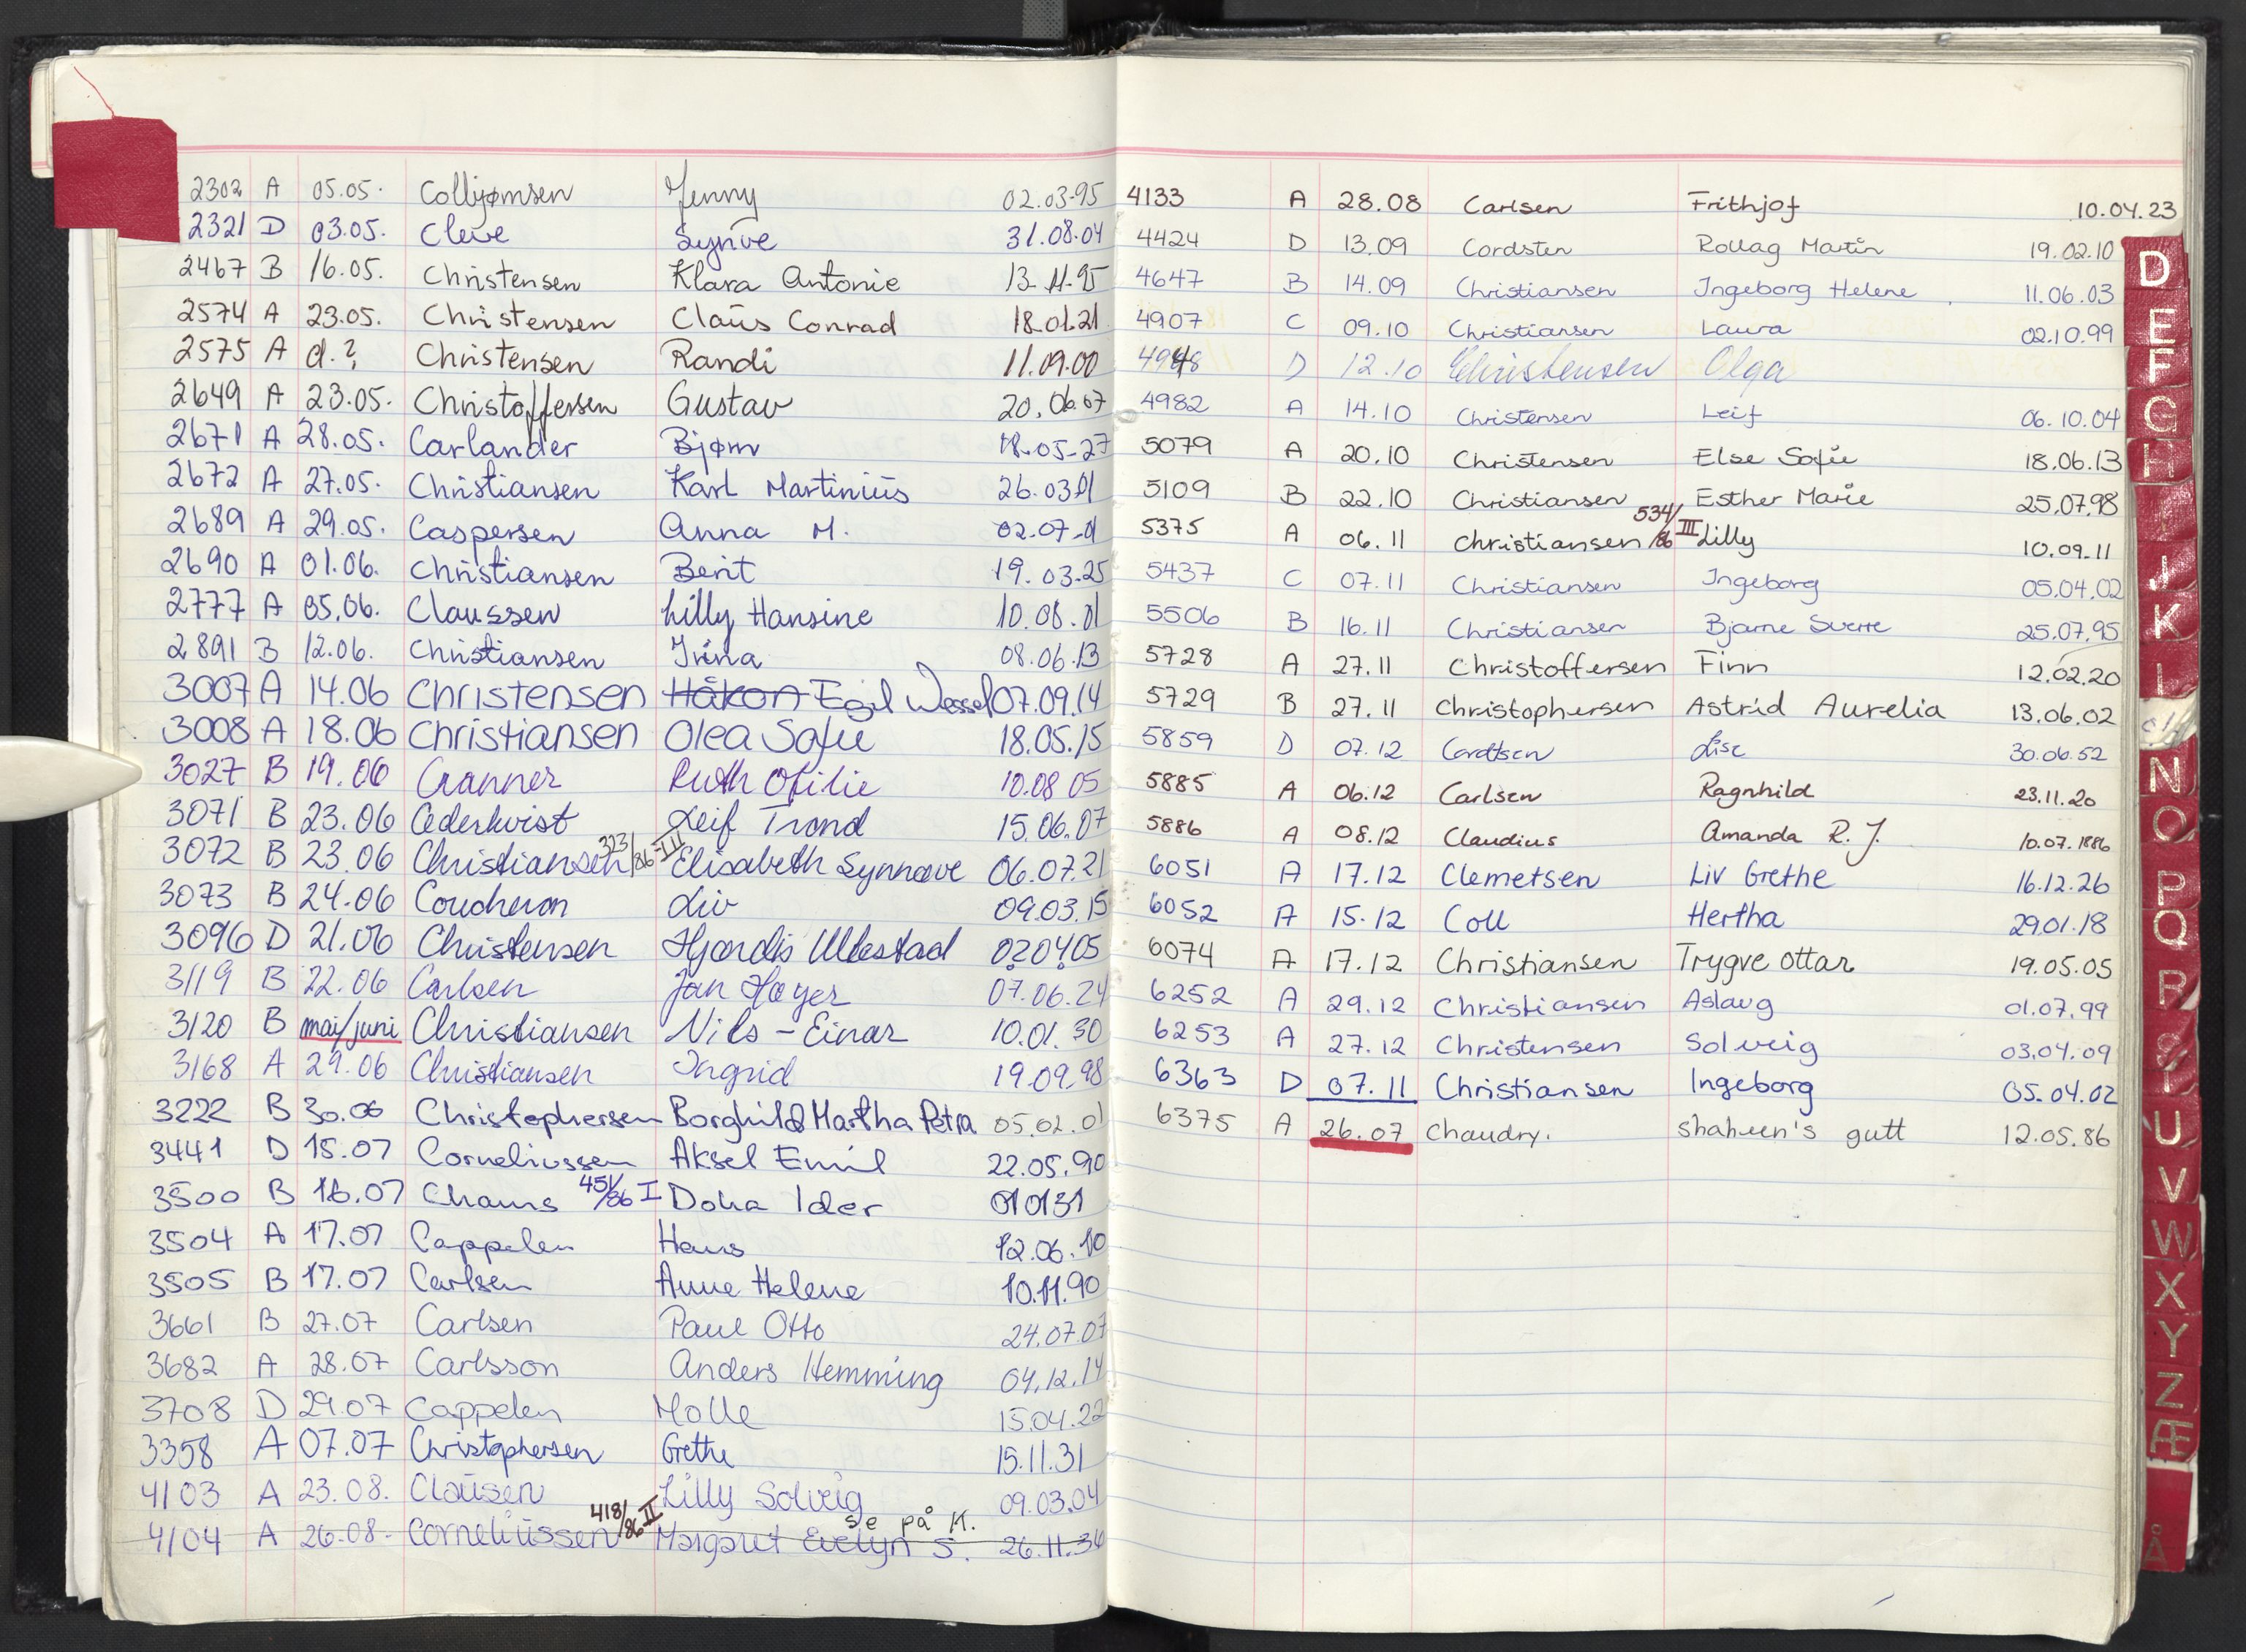 2302 A 05.05. Collbjømsen Jenny 02.03-95
2321 D 03.05. Cleve Synve 31.08.04
2467 B 16.05. Christensen Klara Antonie 13-11-95
2574 A 23.05. Christensen Claus Conrad 18.01.21
2575 A d.? Christensen Randi 11.09.00
2649 A 23.05. Christoffersen Gustav 20.06.07
2671 A 28.05. Carlander Bjørn 18-05-27
2672 A 27.05. Christiansen Karl Martinius 26.03.01
2689 A 29.05. Caspersen Anna M. 02.07-01
2690 A 01.06. Christiansen Berit 19.03.25
2777 A 05.06. Claussen Lilly Hansine 10.08.01
2891 B 12.06. Christiansen Irina 08.06.13
3007 A 14.06 Christensen Håkon Egil Wessel 07.09.14
3008 A 18.06 Christiansen Olea Sofie 18.05.15
3027 B 19.06 Cranner Ruth Ofilie 10.08 05
3071 B 23.06 Cederkvist Leif Trond 15.06.07
3072 B 23.06 Christiansen 323/86-III Elisabeth Synnøve 06.07.21
3073 B 24.06 Coucheron Liv 09.03.15
3096 D 21.06 Christensen Hjørdis Ullestad 02.04.05
3119 B 22.06 Carlsen Jan Høyer 07.06.24
3120 B mai/juni Christiansen Nils-Einar 10.01.30
3168 A 29.06 Christiansen Ingrid 19.09.98
3222 B 30.06 Christophersen Borghild Martha Petra 05.02.01
3441 D 15.07 Corneliussen Aksel Emil 22.05.90
3500 B 16.07 Chams 451/86 I Doha Ider 010131
3504 A 17.07 Cappelen Hans 12.06.10
3505 B 17.07 Carlsen Anne Helene 10.11.90
3661 B 27.07 Carlsen Paul Otto 24.07.07
3682 A 28.07 Carlsson Anders Hemming 04.12.14
3708 D 29.07 Cappelen Molle 15.04.22
3358 A 07.07 Christophersen Grethe 15.11.31
4103 A 23.08. Clausen Lilly Solveig 09.03.04
4104 A 26-08- Corneliussen 418/86 II Margaret Evelyn S. 26.11.36
se på K.
4133 A 28.08 Carlsen Frithjof 10.04.23
4424 D 13.09 Cordsten Rollag Martin 19.02.10
4647 B 14.09 Christiansen Ingeborg Helene 11.06.03
4907 C 09.10 Christiansen Laura 02.10.99
4948 D 12.10 Christensen Olga
4982 A 14.10 Christensen Leif 06.10.04
5079 A 20.10 Christensen Else Sofie 18.06.13
5109 B 22.10 Christiansen Esther Marie 25.07.98
5375 A 06.11 Christiansen 534/86 III Lilly 10.09.11
5437 C 07.11 Christiansen Ingeborg 05.04.02
5506 B 16.11 Christiansen Bjarne Sverre 25.07.95
5728 A 27.11 Christoffersen Finn 12.02.20
5729 B 27.11 Christophersen Astrid Aurelia 13.06.02
5859 D 07.12 Cordtsen Lise 30.06.52
5885 A 06.12 Carlsen Ragnhild 23.11.20
5886 A 08.12 Claudius Amanda R. J. 10.07.1886
6051 A 17.12 Clemetsen Liv Grethe 16.12.26
6052 A 15.12 Coll Hertha 29.01.18
6074 A 17.12 Christiansen Trygve Ottar 19.05.05
6252 A 29.12 Christiansen Aslaug 01.07.99
6253 A 27.12 Christensen Solveig 03.04.09
6363 D 07.11 Christiansen Ingeborg 05.04.02
6375 A 26.07 Chaudry. Shaheen's gutt 12.05.86
D
E
F
G
H
J
K
L
N
O
P
Q
R
S
T
U
V
W
X
Y
Z
Æ
Å